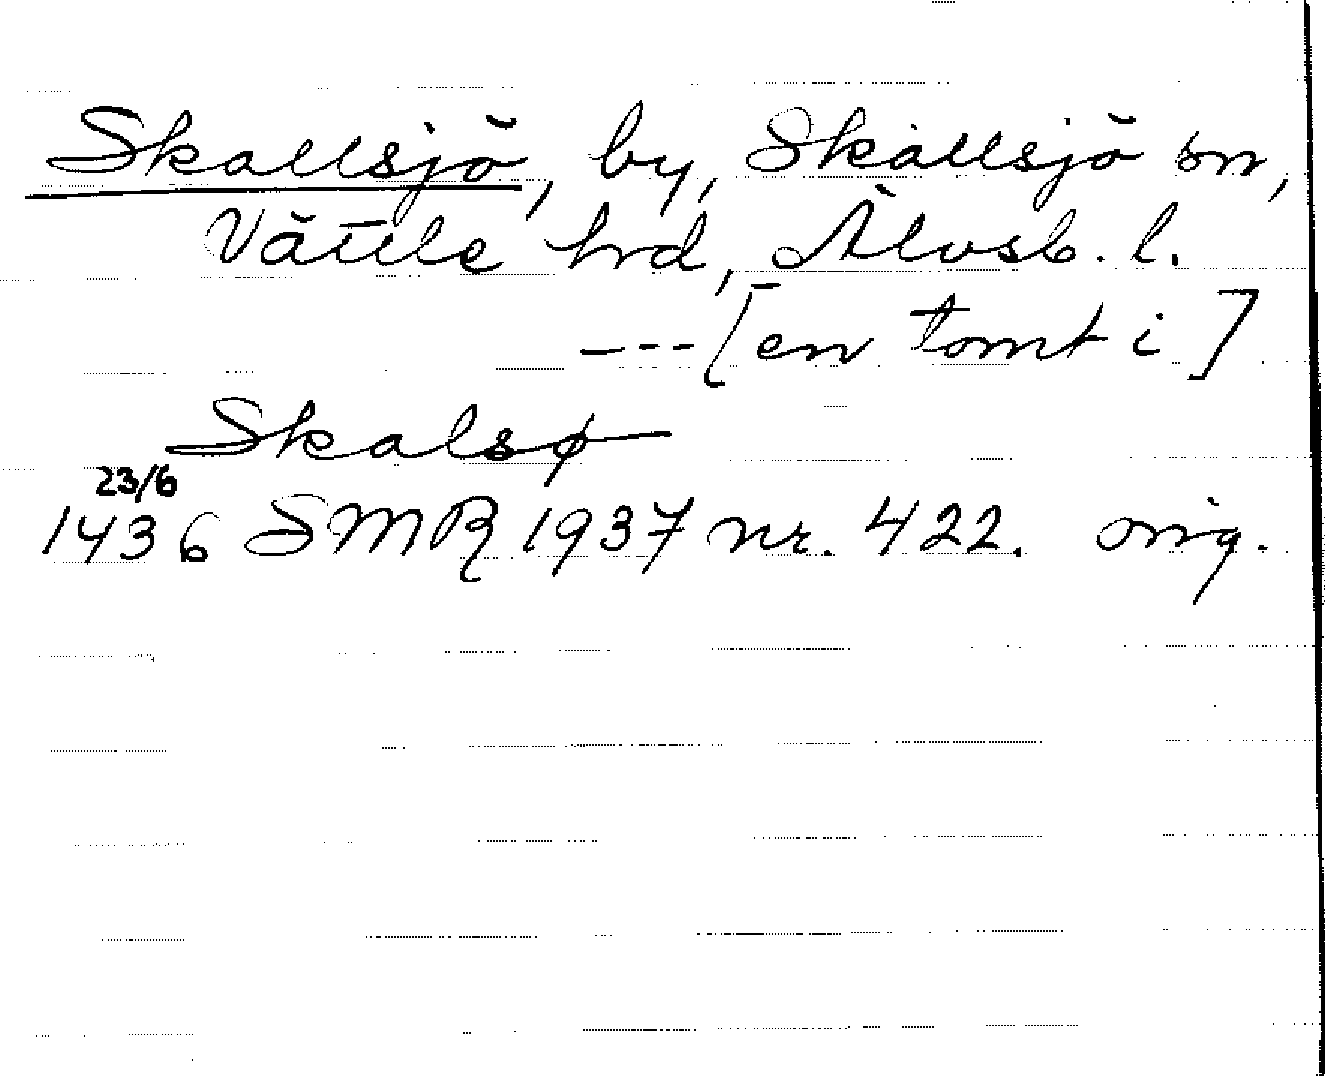 Skallsjö, by, Skallsjö sn,
Vättle hd, Älvsb. l.
--- [en tomt i]
Skalsø
23/6
1436 SMR 1937 nr. 422. orig.